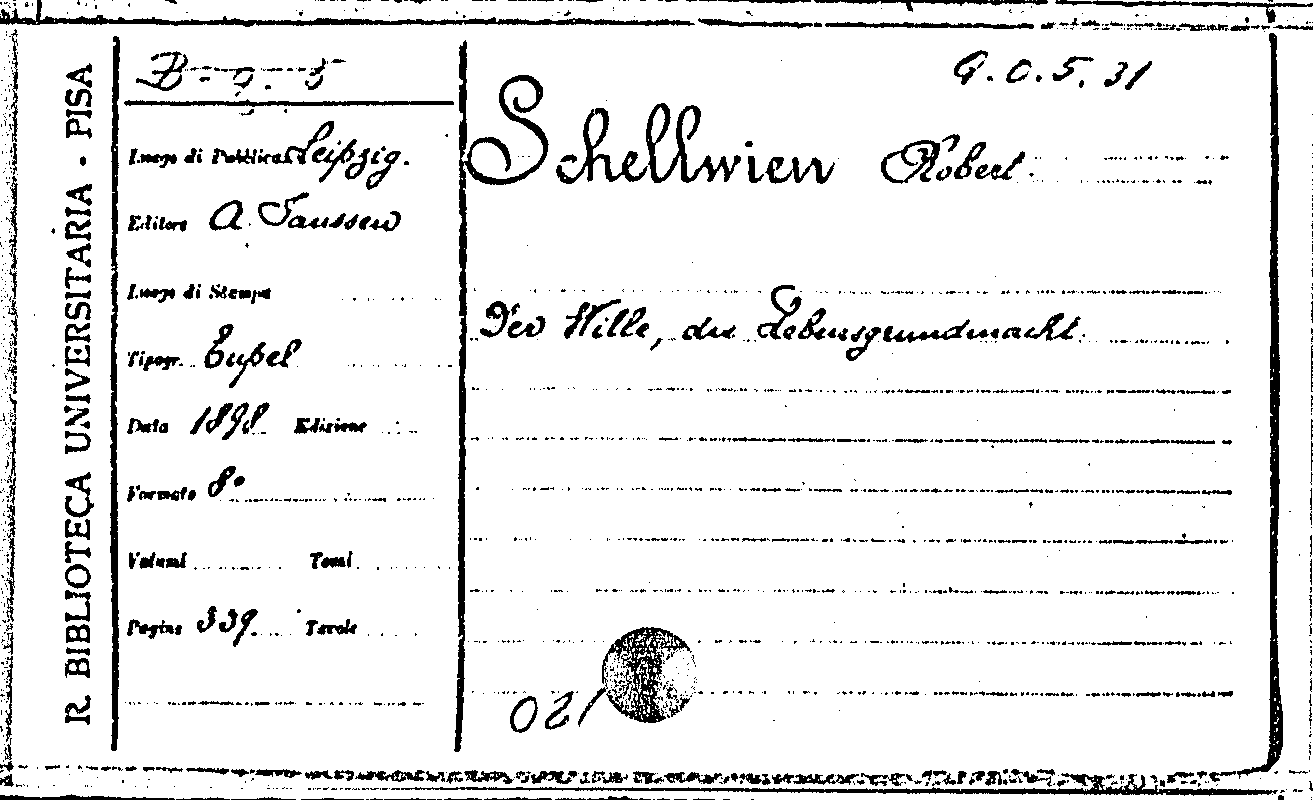 R. BIBLIOTECA UNIVERSITARIA - PISA
B - 9. 5
G. O. 5. 31
Luogo di Pubblicaz. Leipzig.
Schellwien Robert
Editore A. Janssen
Luogo di Stampa
Der Wille, die Lebensgrundmacht
Tipogr. Eupel
Data 1898 Edizione
Formato 8º
Volumi Tomi
Pagine 339. Tavole
021